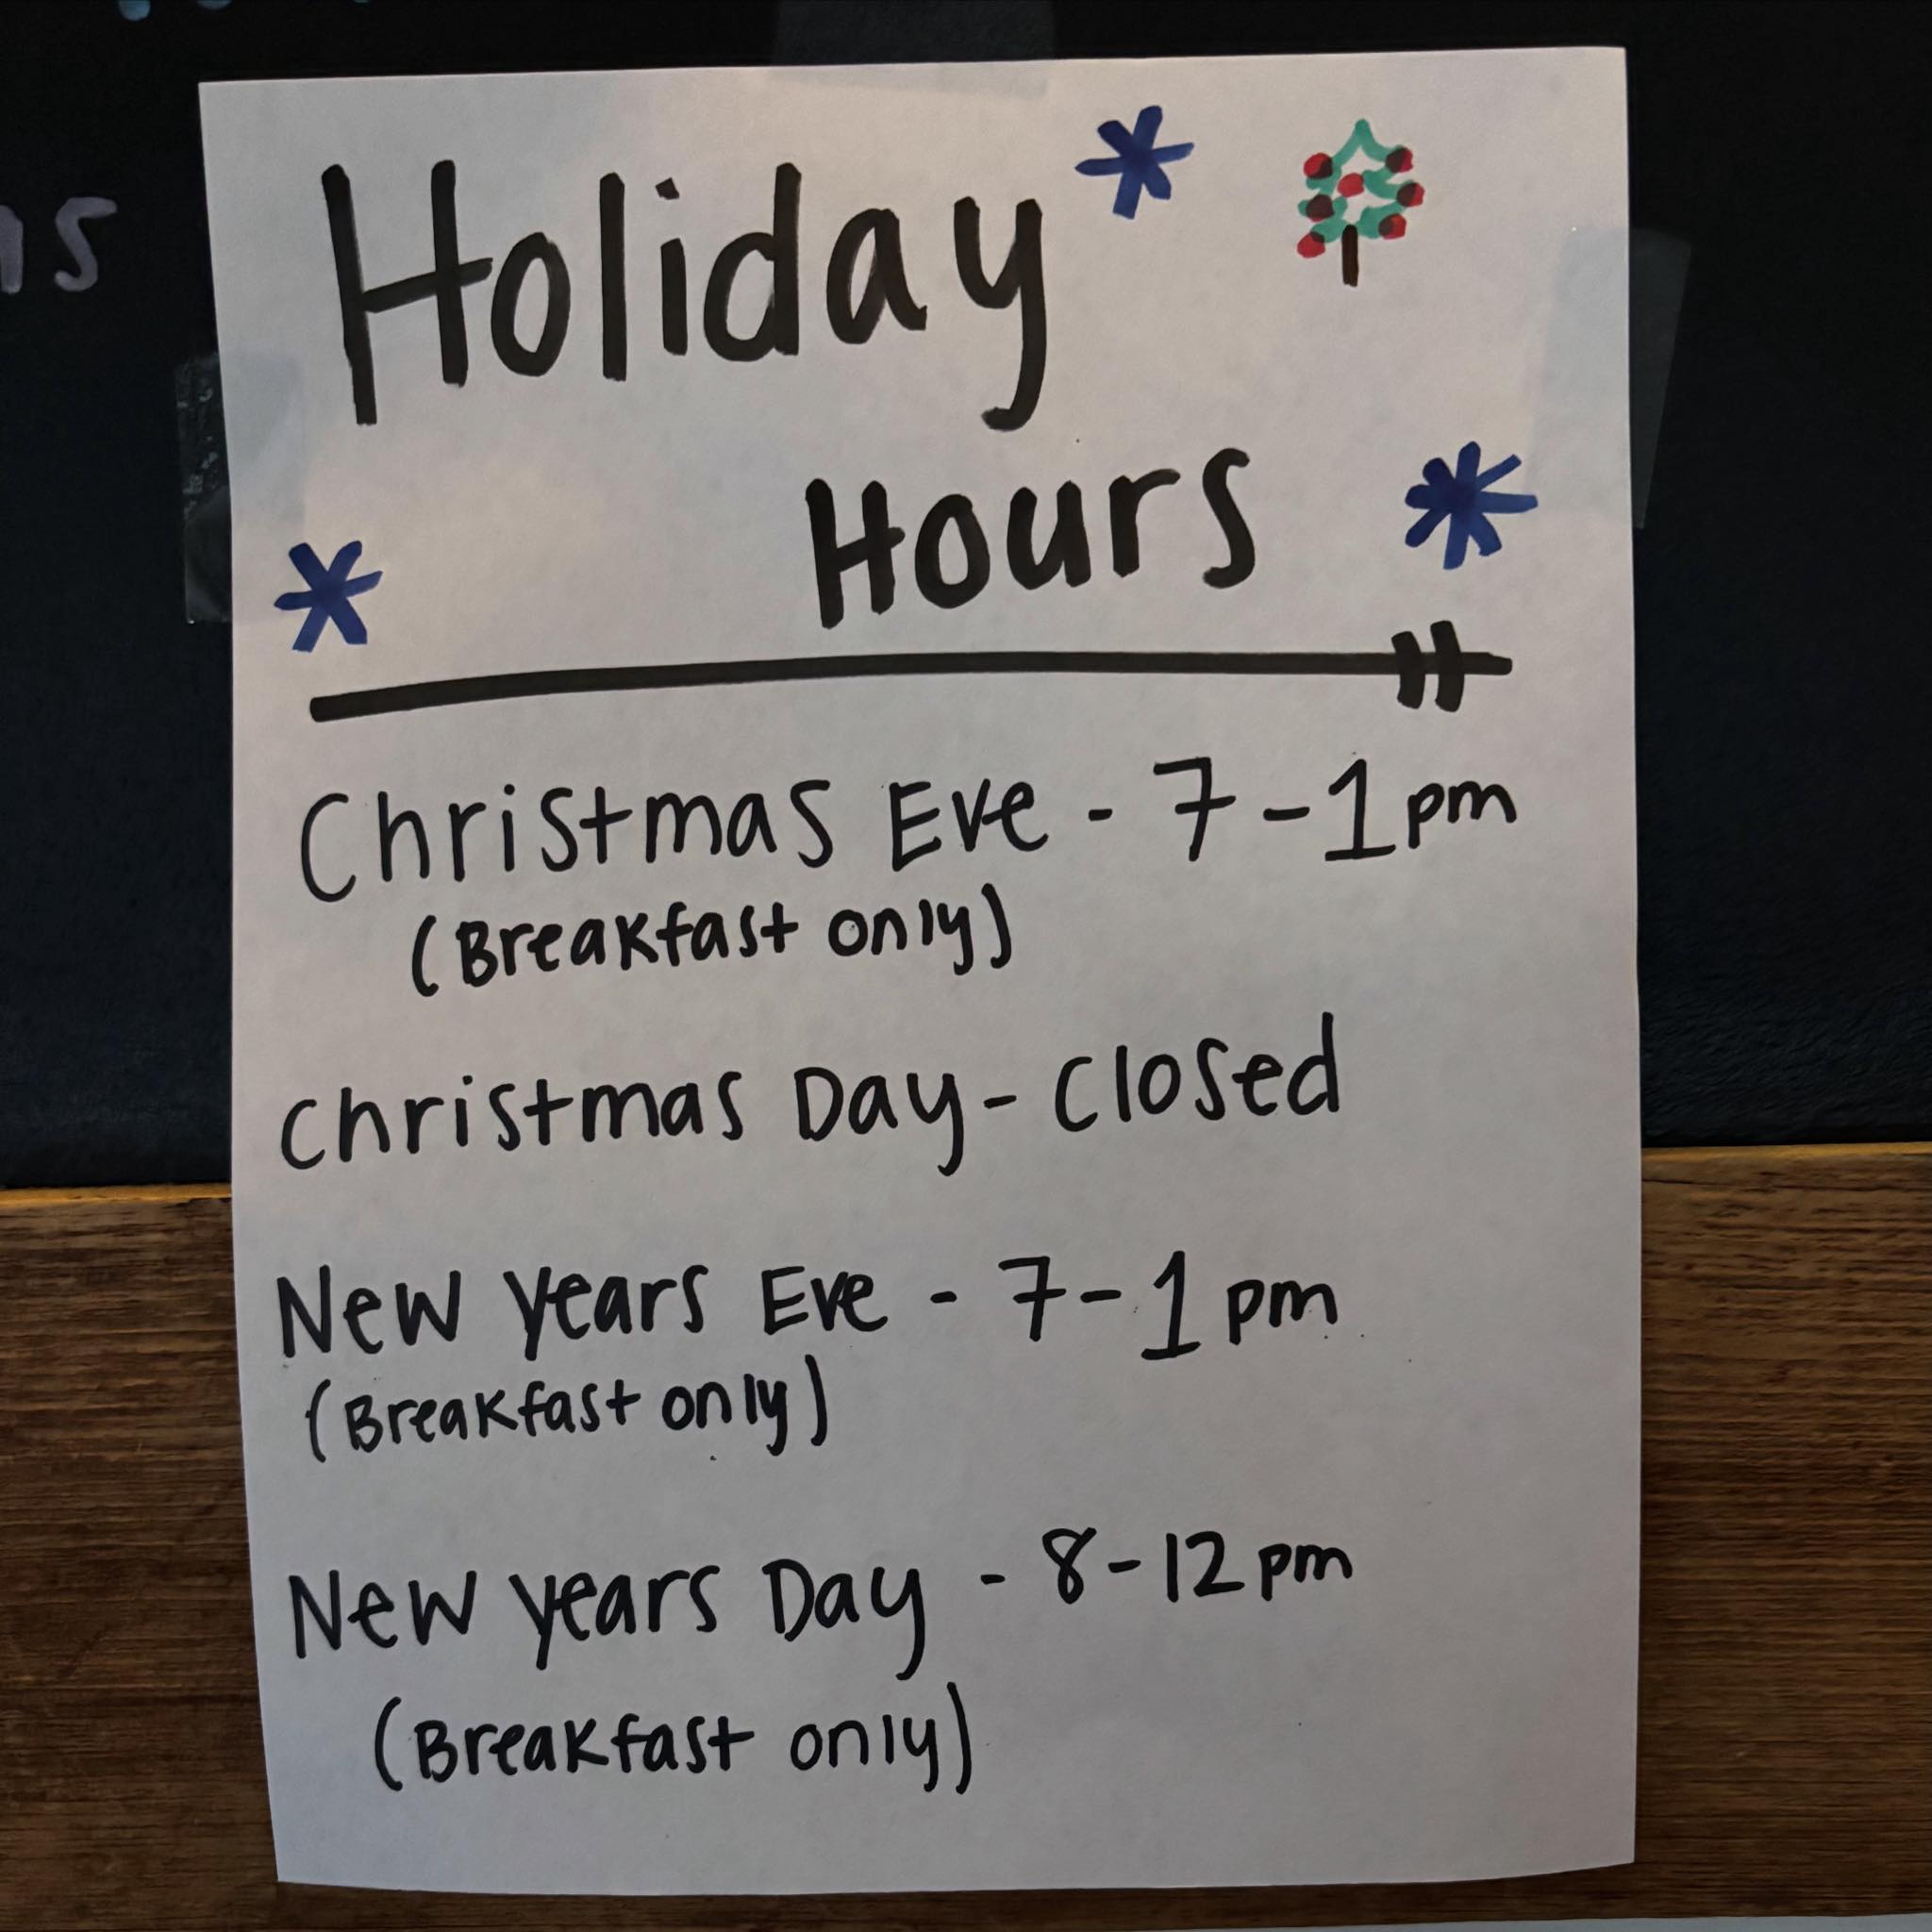 Holiday
Hours
Christmas Eve - 7-1pm
(Breakfast only)
Christmas Day- Closed
New years Eve - 7-1pm
(Breakfast only)
New years Day - 8-12pm
(Breakfast only)